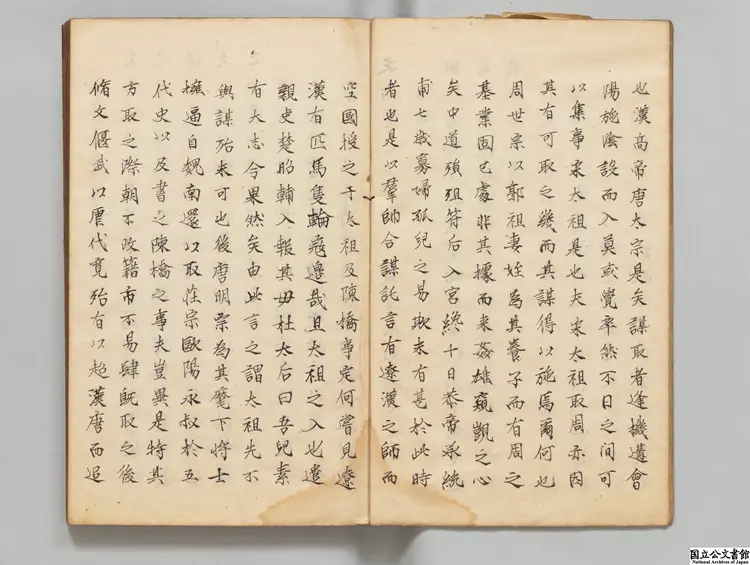 也漢高帝唐太宗是矣謀取者逢機遘會
陽施陰設而入莫或覺卒然不日之間可
以集事宋太祖是也夫宋太祖取周亦因
其有可取之幾而其謀得以施焉爾何也
周世宗以郭祖妻姪為其養子而有周之
基業固已處非其據而来姦雄窺覬之心
矣中道殞殂符后入宮終十日恭帝承統
甫七歲寡婦孤兒之易欺未有甚於此時
者也是以羣帥合謀託言有遼漢之師而
空國授之于太祖及陳橋事定何嘗見遼
漢有匹馬隻輪寇邊哉且太祖之入也遣
親吏楚昭輔入報其母杜太后曰吾兒素
有大志今果然矣由此言之謂太祖先不
與謀殆未可也後唐明宗為其麾下將士
擁逼自魏南還以取莊宗歐陽永叔於五
代史以反書之陳橋之事夫豈異是特其
方取之際朝不改籍市不易肆既取之後
脩文偃武以歷代寛殆有以超漢唐而追
国立公文書館
National Archives of Japan